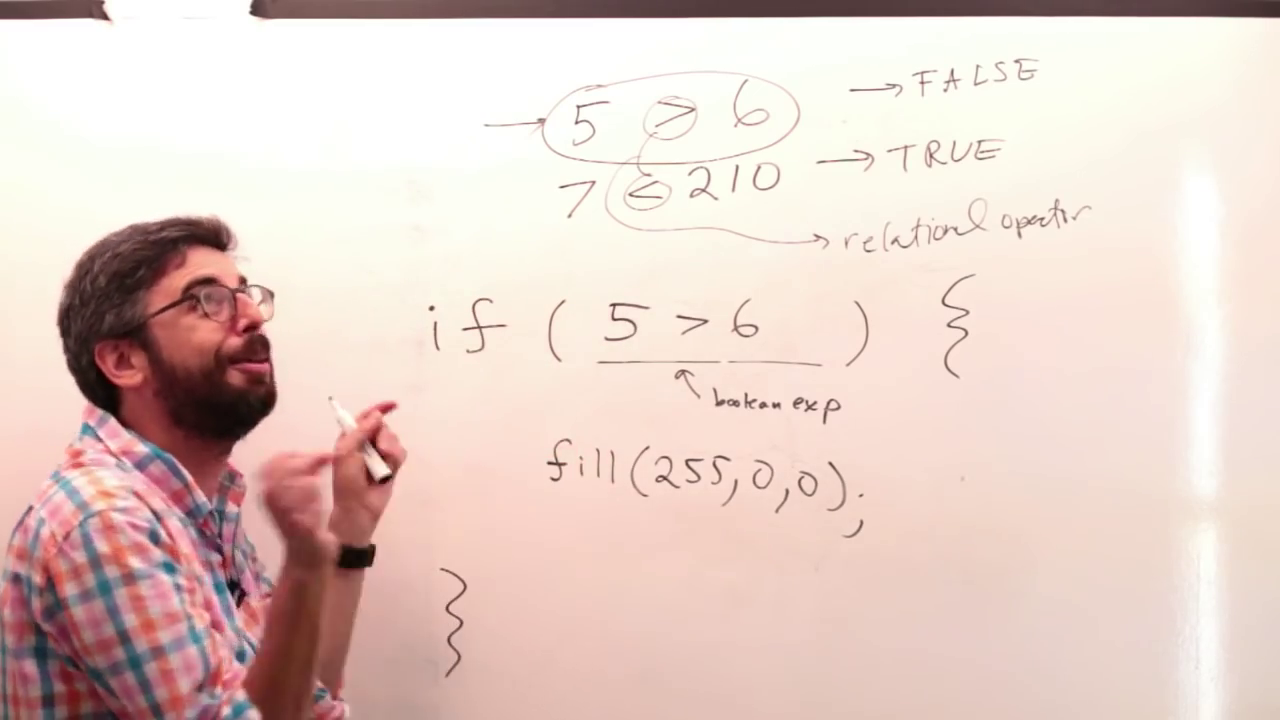 5 > 6 → FALSE
7 < 210 → TRUE
relational operator
if ( 5 > 6 ) {
boolean exp
fill(255,0,0);
}